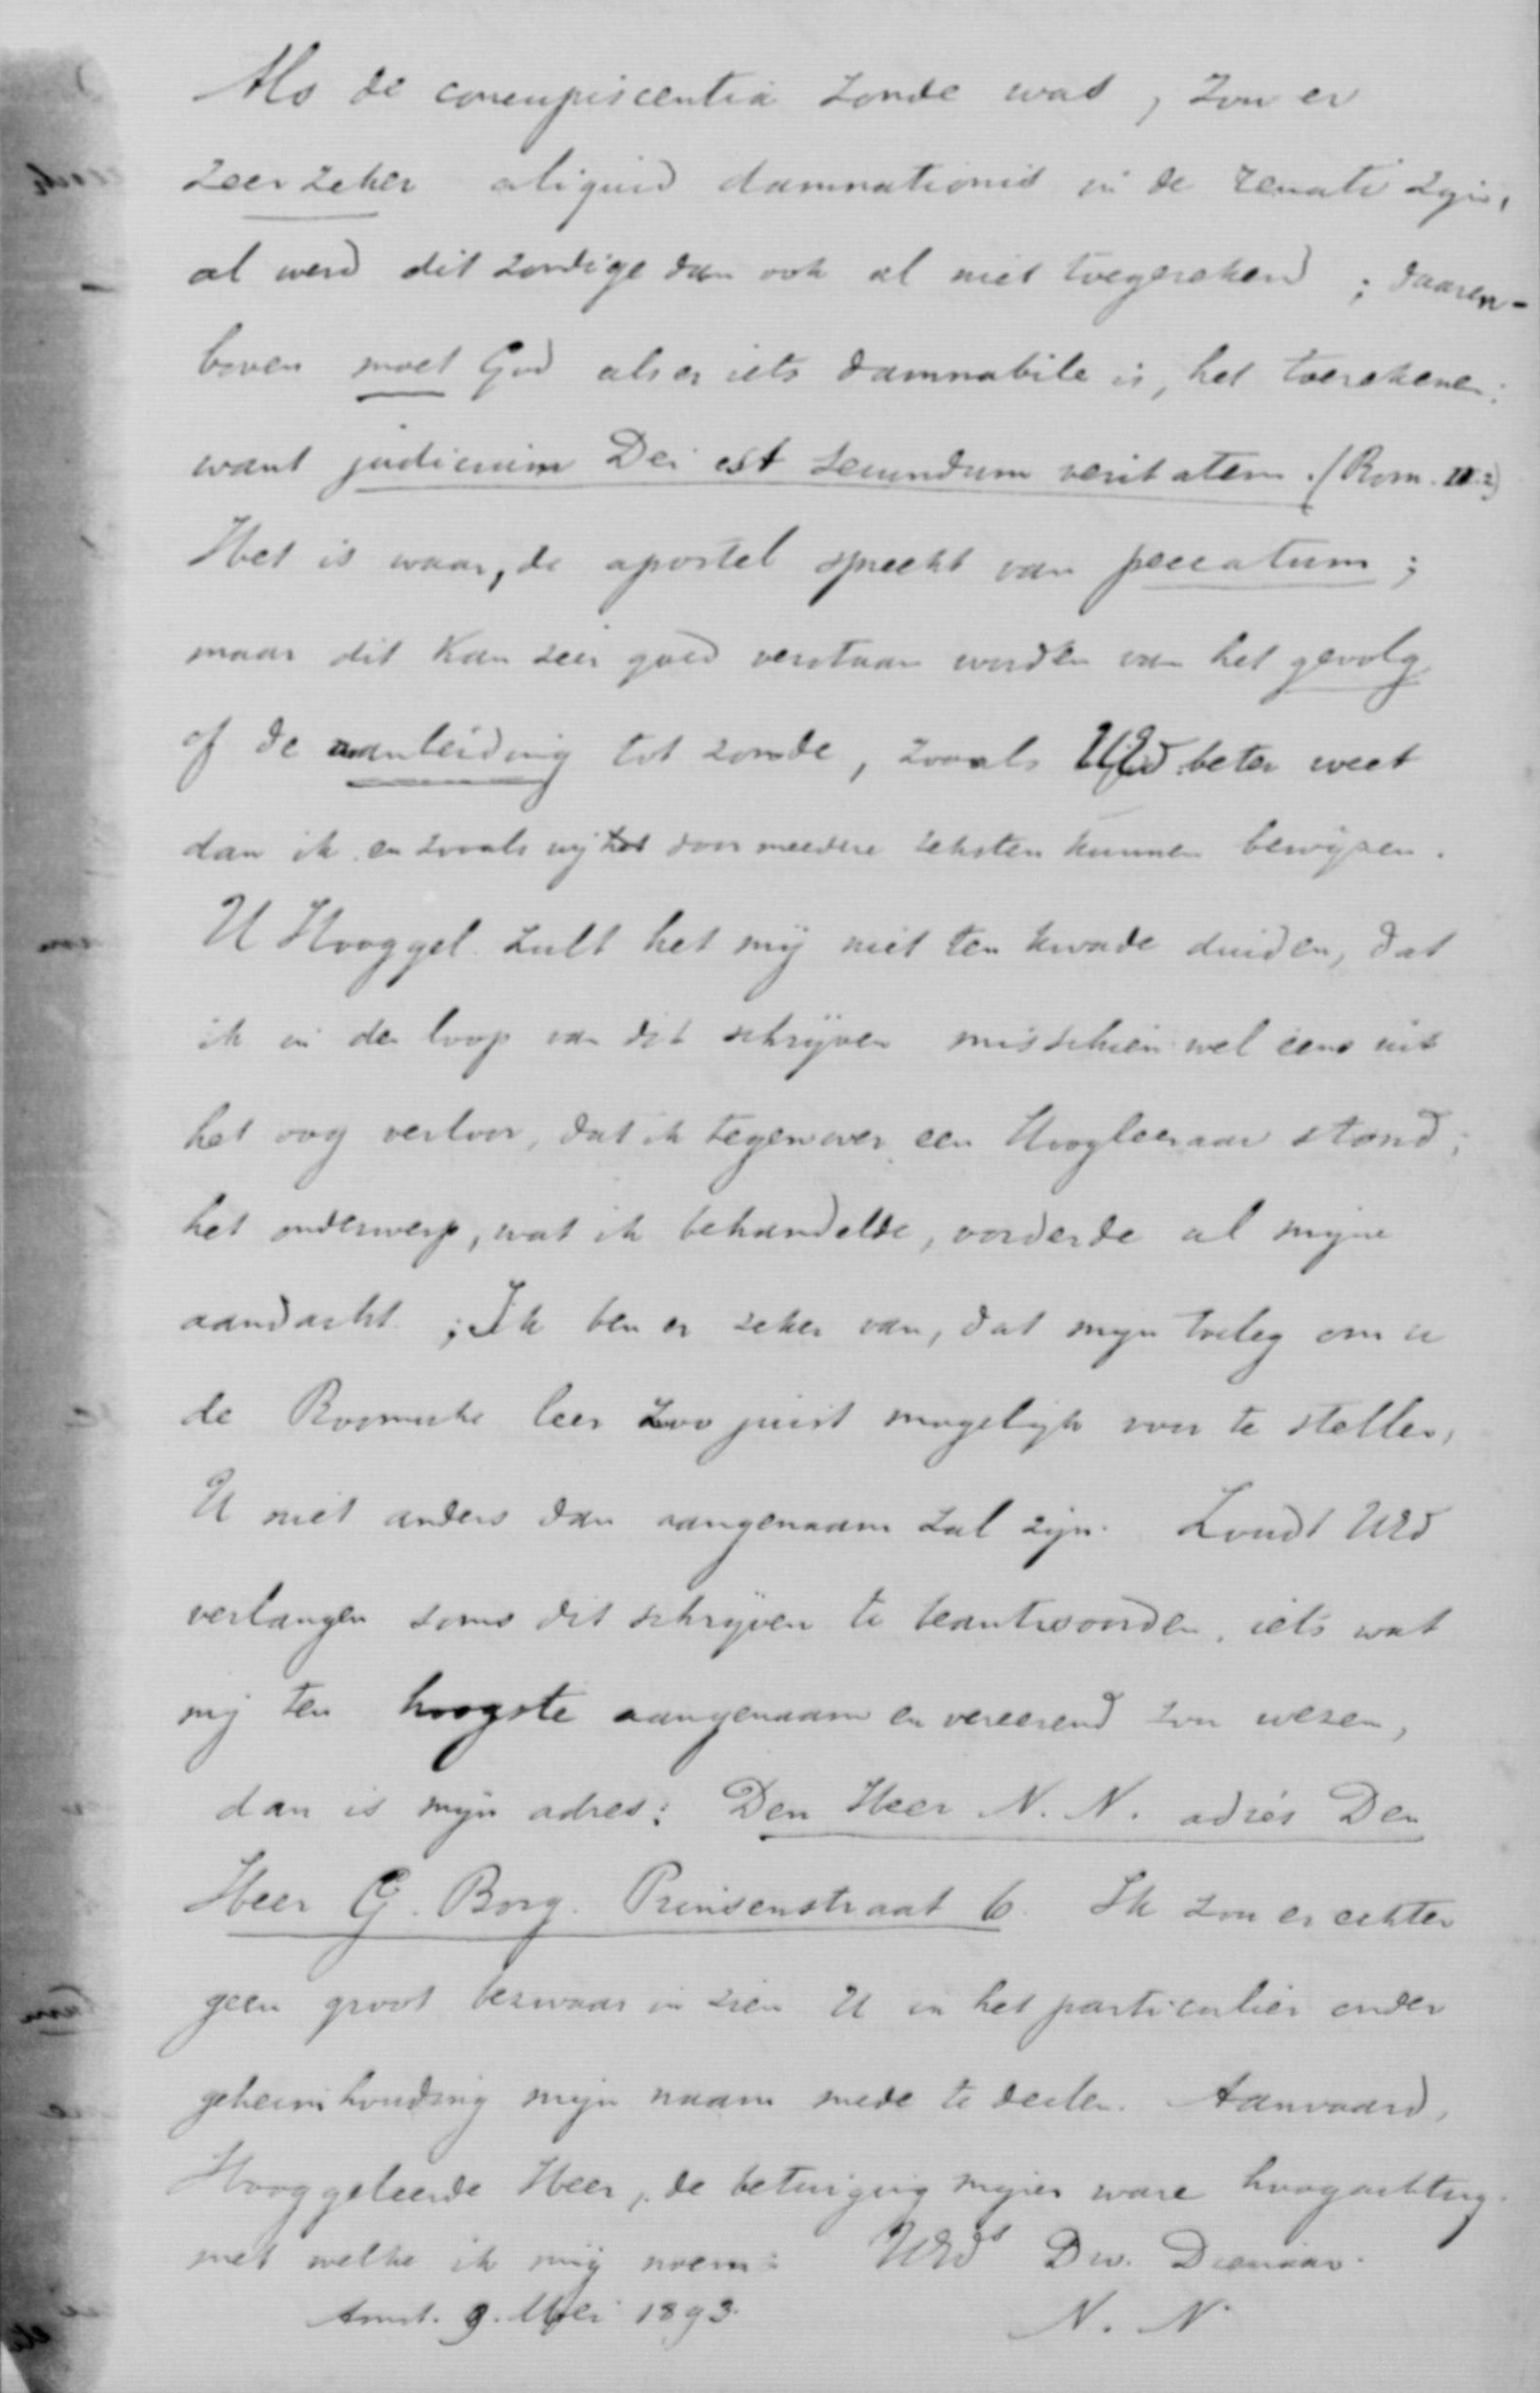 Als de concupiscentia zonde was, zou er
zeer zeker aliquid damnationis in de renati zijn,
al werd dit zondige dan ook al niet toegerekend; daaren-
boven moet God als er iets damnabile is, het toerekenen:
want judicium Dei est secundum veritatem. (Rom. II.2)
Het is waar, de apostel spreekt van peccatum;
maar dit kan zeer goed verstaan worden van het gevolg
of de aanleiding tot zonde, zooals UEd beter weet
dan ik en zooals wij het door meerdere teksten kunnen bewijzen.
U Hooggel. zult het mij niet ten kwade duiden, dat
ik in den loop van dit schrijven misschien wel eens uit
het oog verloor, dat ik tegenover een Hoogleeraar stond;
het onderwerp, wat ik behandelde, vorderde al mijne
aandacht; Ik ben er zeker van, dat mijn toeleg om u
de Roomsche leer zoo juist mogelijk voor te stellen,
U niet anders dan aangenaam zal zijn. Zoudt UEd
verlangen soms dit schrijven te beantwoorden, iets wat
mij ten hoogste aangenaam en vereerend zou wezen,
dan is mijn adres: Den Heer N. N. adrés Den
Heer G. Borg. Prinsenstraat 6. Ik zou er echter
geen groot bezwaar in zien U in het particulier onder
geheimhouding mijn naam mede te deelen. Aanvaard,
Hooggeleerde Heer, de betuiging mijner ware hoogachting.
met welke ik mij noem: UEds Dw. Dienaar.
Amst. 9. Mei 1893. N. N.